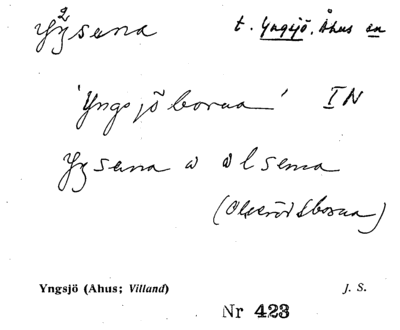 Yzsena t. Yngsjö, Åhus sn
'Yngsjöborna' IN
Yzsena o olsena
(Olserödsborna)
Yngsjö (Åhus; Villand) J. S.
Nr 423